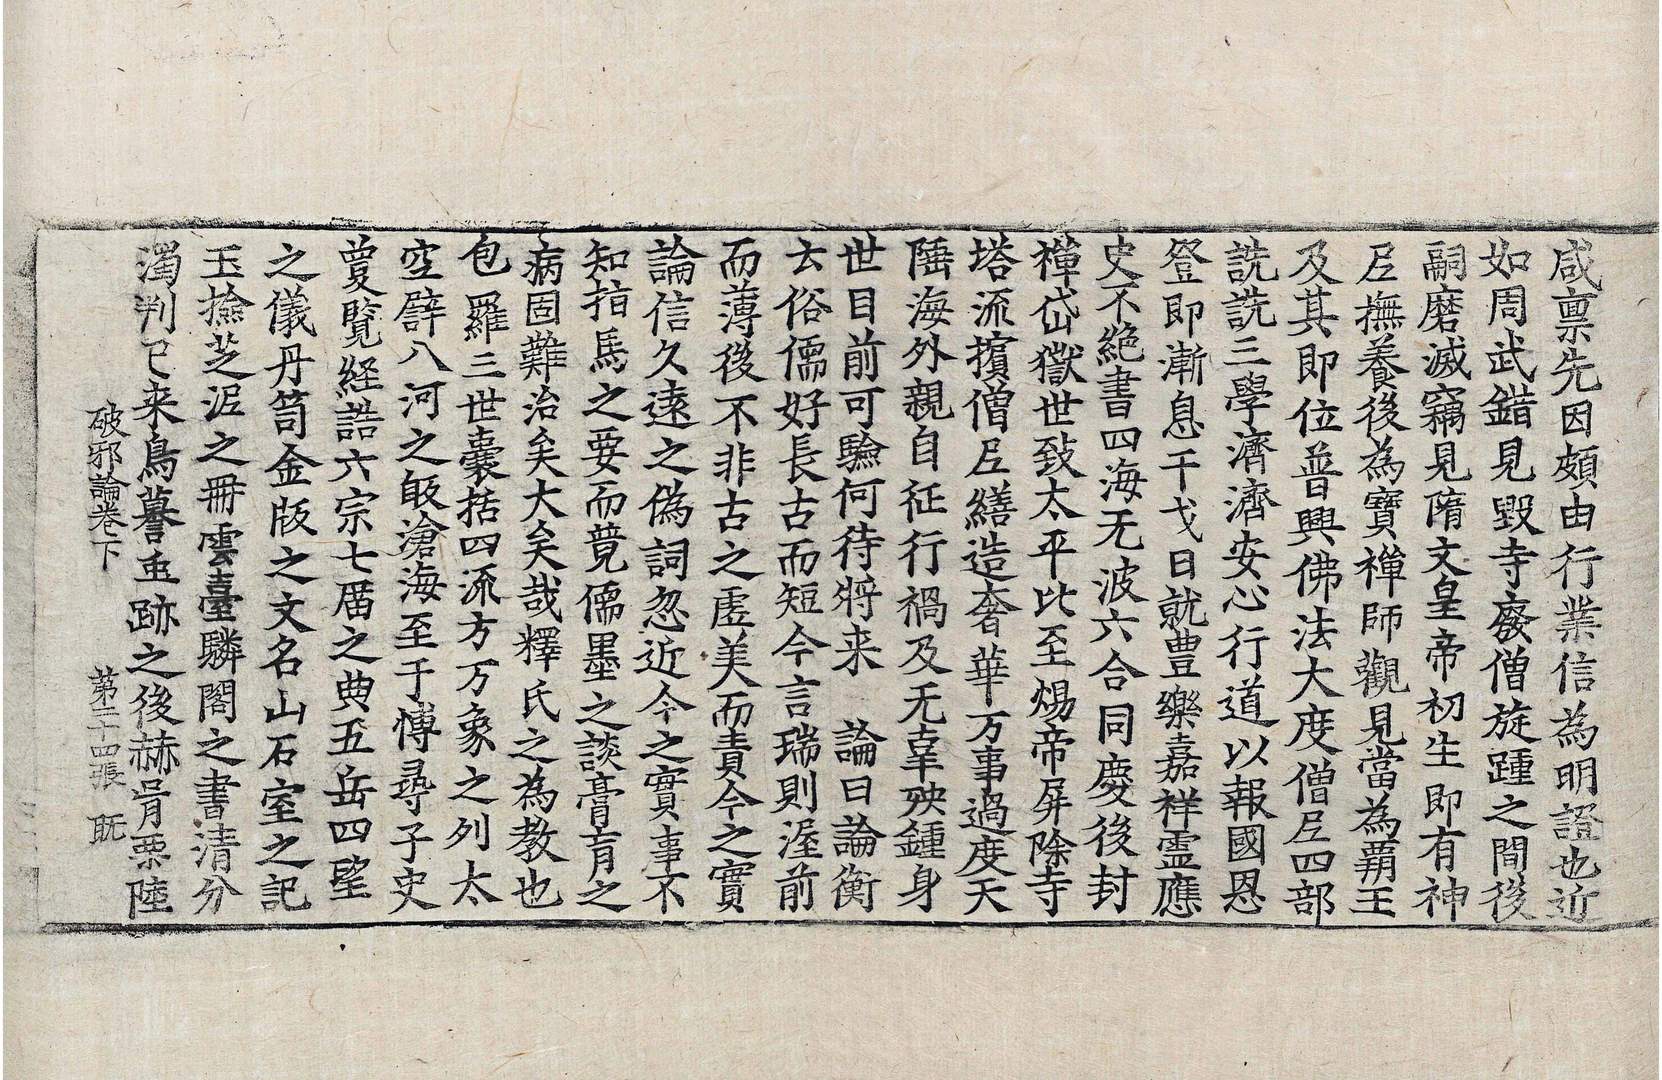 咸禀先因頗由行業信為明證也近
如周武錯見毀寺廢僧旋踵之間後
嗣磨滅竊見隋文皇帝初生即有神
尼撫養後為寶禪師觀見當為覇王
及其即位普興佛法大度僧尼四部
詵詵三學濟濟安心行道以報國恩
登即漸息干戈日就豊樂嘉祥靈應
史不絶書四海无波六合同慶後封
禪岱嶽世致太平比至煬帝屏除寺
塔流擯僧尼繕造奢華万事過度天
陲海外親自征行禍及无辜殃鍾身
世目前可驗何待將来 論曰論衡
云俗儒好長古而短今言瑞則渥前
而薄後不非古之虛美而責今之實
論信久遠之偽詞忽近今之實事不
知指馬之要而競儒墨之談膏肓之
病固難治矣大矣哉釋氏之為教也
包羅三世囊括四流方万象之列太
空譬八河之皈滄海至于博尋子史
敻覽経誥六宗七𠪱之典五岳四望
之儀丹笥金版之文名山石室之記
玉撿芝泥之冊雲臺驎閣之書清分
濁判已来鳥謩𠂹跡之後赫胥栗陸
破邪論卷下 第二十四張 旣